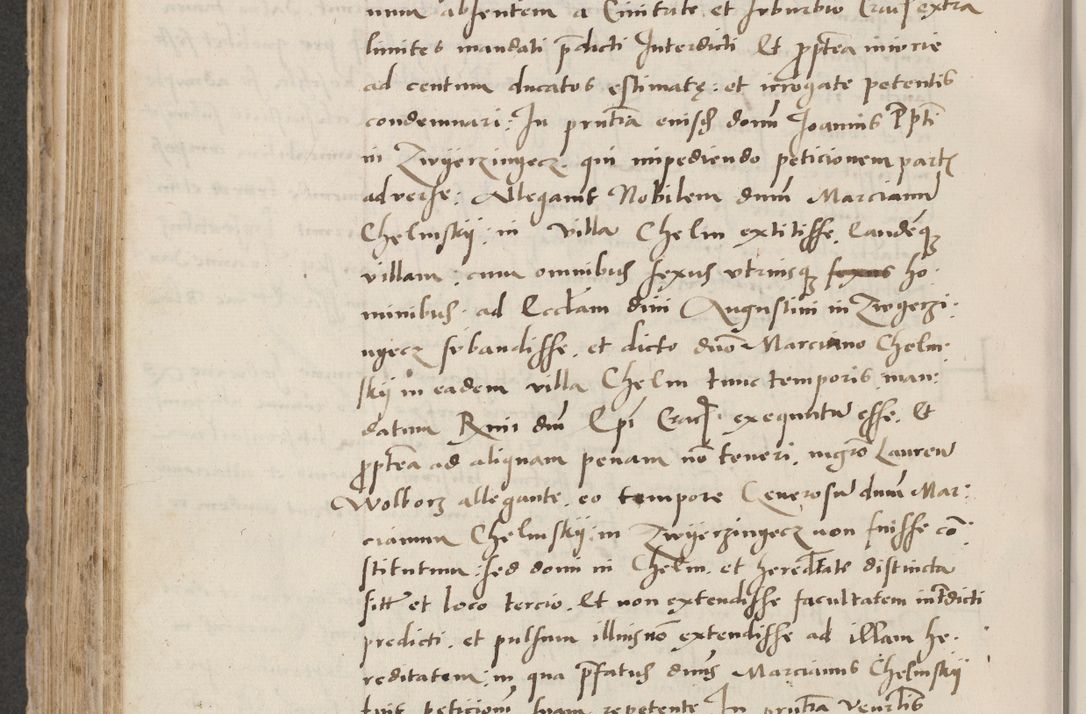 num absentem a Civitate et suburbio Crac extra
limites mandati p̄dicti Interdicti Et ꝓptea iniurie
ad centum ducatos estimatę. et irrogate petentis
condemnari: In pñtia eiusđ domī Joannis Ppti
in Zwyerzingecz. qui impediendo peticionem partꝭ
adverse: Allegavit Nobilem dnm̄ Marcianū
Chelmskij. in villa Chelm extitisse. Eandēqꝫ
villam. cum omnibus sexus utriusqꝫ sexus ho:
minibus. ad Eccłam divi Augustini in Zwyerzi:
ngecz subaudisse. et dicto dnō Marciano Chelm:
skij in eadem villa Chelm tunc temporis. man:
datum Rmi dnī Epī Crac. exequutū esse. Et
ꝓptea ad aliquam penam nō teneri. mgrō Lauren
Wolborz allegante. eo tempore Generosū dnm̄ Mar:
cianum Chelmskij. in Zwyerzingecz non fuisse cō:
stitutum. sed domi in Chelm. et hereditate distincta
sitł et loco tercio. Et non extendisse facultatem intdicti
predicti. et pulsum illius nō extendisse ad illam he:
reditatem. in qua p̄fatus dnūs Marcianus Chelmskij
fuit peticionē suam repetente In pñtia